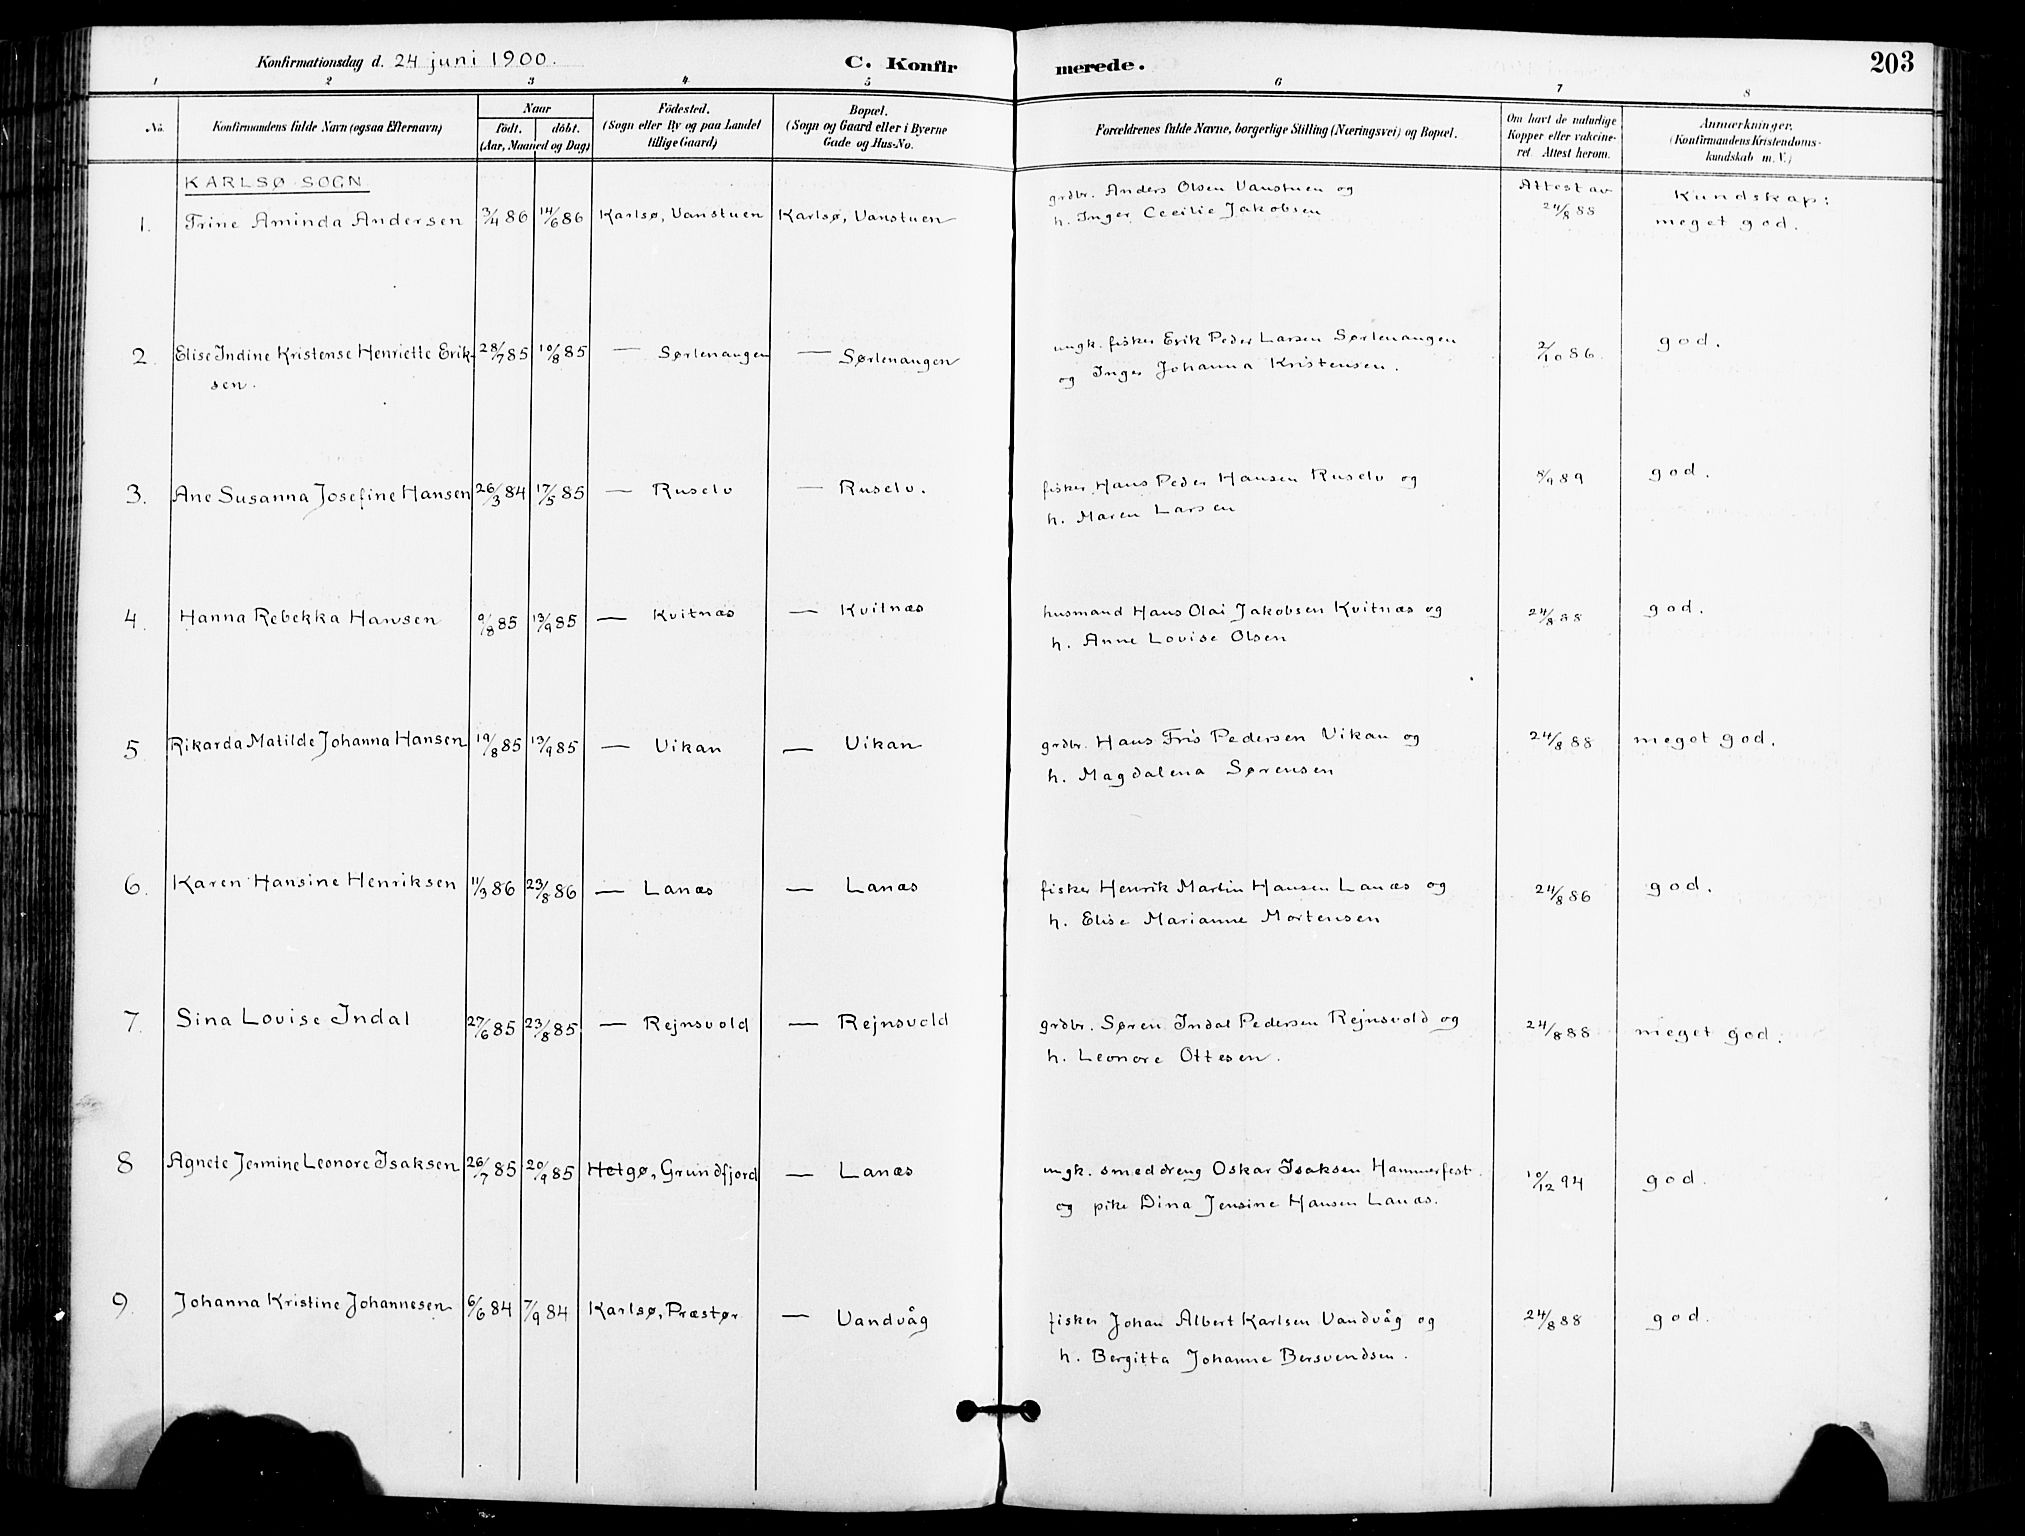 Konfirmationsdag d. 24 juni 1900.
C. Konfirmerede.
203
1 2 3 4 5 6 7 8
No.
Konfirmandens fulde Navn (ogsaa Efternavn)
Naar
födt. döbt.
(Aar, Maaned og Dag)
Födested.
(Sogn eller By og paa Landet
tillige Gaard)
Bopæl.
(Sogn og Gaard eller i Byerne
Gade og Hus-No.
Forældrenes fulde Navne, borgerlige Stilling (Næringsvei) og Bopæl.
Om havt de naturlige
Kopper eller vakcine-
ret. Attest herom.
Anmærkninger.
(Konfirmandens Kristendoms-
kundskab m. V.)
KARLSØ SOGN
1. Trine Aminda Andersen 3/4 86 14/6 86 Karlsø, Vanstuen Karlsø, Vanstuen grdbr. Anders Olsen Vanstuen og Attest av Kundskap:
h. Inger Cecilie Jakobsen 24/8 88 meget god.
2. Elise Indine Kristense Henriette Erik- 28/7 85 10/8 85 — Sørlenangen — Sørlenangen ungk. fisker Erik Peder Larsen Sørlenangen 2/10 86. god.
sen. og Inger Johanna Kristensen.
3. Ane Susanna Josefine Hansen 26/3 84 17/5 85 — Ruselv — Ruselv. fisker Hans Peder Hansen Ruselv og 8/9 89 god.
h. Maren Larsen
4. Hanna Rebekka Hansen 9/8 85 13/9 85 — Kvitnæs — Kvitnæs husmand Hans Olai Jakobsen Kvitnæs og 24/8 88 god.
h. Anne Lovise Olsen
5 Rikarda Matilde Johanna Hansen 19/8 85 13/9 85 — Vikan — Vikan grdbr. Hans Fris Pedersen Vikan og 24/8 88 meget god.
h. Magdalena Sørensen
6. Karen Hansine Henriksen 11/3 86 23/8 86 — Lanæs — Lanæs fisker Henrik Martin Hansen Lanæs og 24/8 86 god.
h. Elise Marianne Mortensen
7. Sina Lovise Indal 27/6 85 23/8 85 — Rejnsvold — Rejnsvold grdbr. Søren Indal Pedersen Rejnsvold og 24/8 88 meget god.
h. Leonore Ottesen.
8 Agnete Jermine Leonore Isaksen 26/7 85 20/9 85 Helgø, Grundfjord — Lanæs ungk. smeddreng Oskar Isaksen Hammerfest 10/12 94 god.
og pike Dina Jensine Hansen Lanæs.
9. Johanna Kristine Johannesen 6/6 84 7/9 84 Karlsø, Præstør — Vandvåg fisker Johan Albert Karlsen Vandvåg og 24/8 88 god.
h. Bergitta Johanne Bersvendsen.